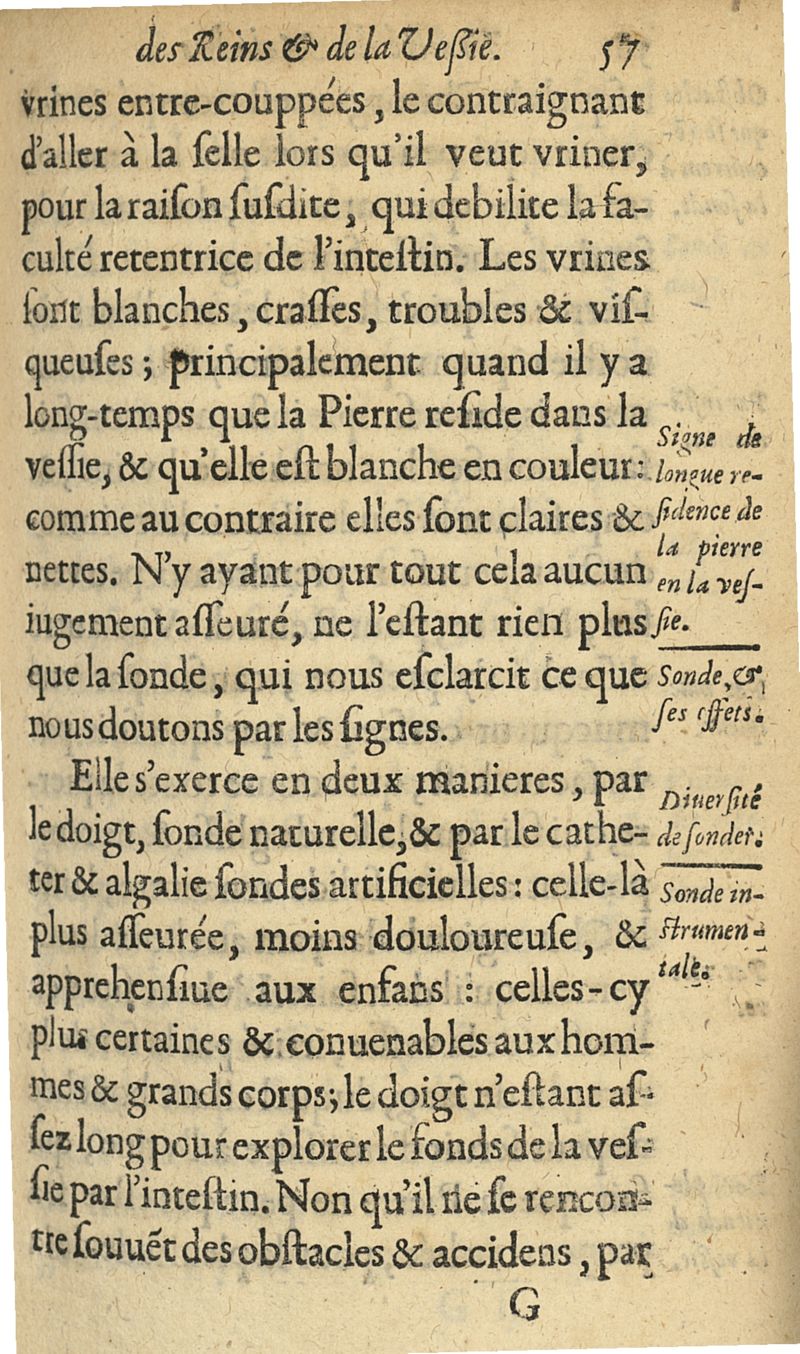 des Reins & de la Veſſie. 57
vrines entre-couppées, le contraignant
d'aller à la ſelle lors qu'il veut vriner,
pour la raiſon ſuſdite, qui debilite la fa-
culté retentrice de l'inteſtin. Les vrines
ſont blanches, craſſes, troubles & viſ-
queuſes; principalement quand il y a
long-temps que la Pierre reſide dans la
veſſie, & qu'elle eſt blanche en couleur:
comme au contraire elles ſont claires &
nettes. N'y ayant pour tout cela aucun
iugement aſſeuré, ne l'eſtant rien plus
que la ſonde, qui nous eſclarcit ce que
nous doutons par les ſignes.
Signe de
longue re-
ſidence de
la pierre
en la veſ-
ſie.
Sonde, &
ſes effets.
Elle s'exerce en deux manieres, par
le doigt, ſonde naturelle, & par le cathe-
ter & algalie ſondes artificielles: celle-là
plus aſſeurée, moins douloureuſe, &
apprehenſiue aux enfans: celles-cy
plus certaines & conuenables aux hom-
mes & grands corps; le doigt n'eſtant aſ-
ſez long pour explorer le fonds de la veſ-
ſie par l'inteſtin. Non qu'il ne ſe rencon-
tre ſouuẽt des obſtacles & accidens, par
Diuerſité
de ſonder.
Sonde in-
ſtrumen-
tale.
G